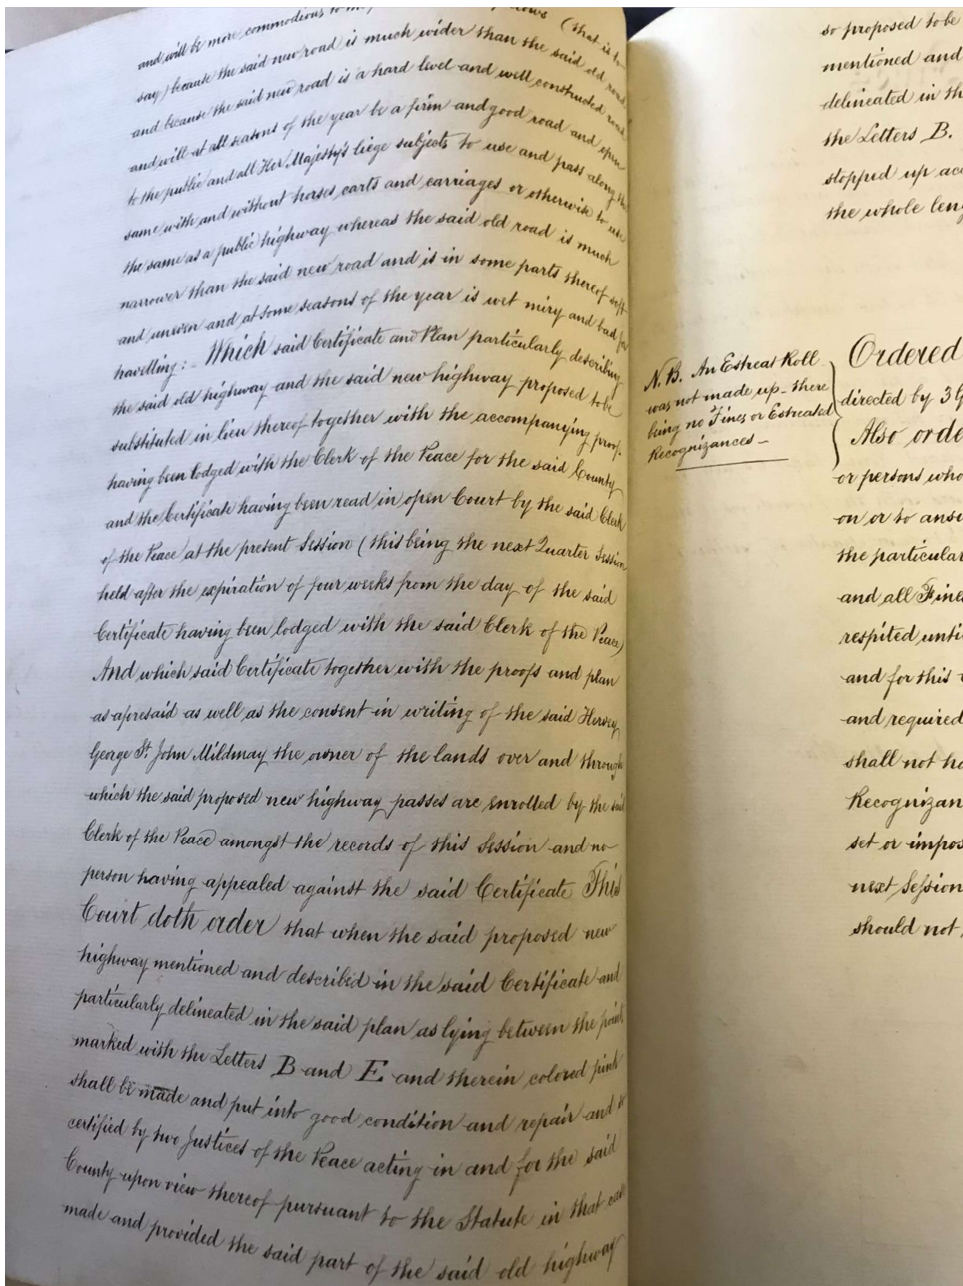 and will be more commodious to (that is to
say) because the said new road is much wider than the said old road
and because the said new road is a hard level and well constructed road
and will at all seasons of the year be a firm and good road and open
to the public and all Her Majesty's liege subjects to use and pass along the
same with and without horses carts and carriages or otherwise to use
the same as a public highway whereas the said old road is much
narrower than the said new road and is in some parts thereof soft
and uneven and at some seasons of the year is wet miry and bad for
travelling:- Which said Certificate and Plan particularly describing
the said old highway and the said new highway proposed to be
substituted in lieu thereof together with the accompanying proof
having been lodged with the Clerk of the Peace for the said County
and the Certificate having been read in open Court by the said Clerk
of the Peace at the present Session (this being the next Quarter Session
held after the expiration of four weeks from the day of the said
Certificate having been lodged with the said Clerk of the Peace)
And which said Certificate together with the proofs and plan
as aforesaid as well as the consent in writing of the said Hervey
George St. John Mildmay the owner of the lands over and through
which the said proposed new highway passes are enrolled by the said
Clerk of the Peace amongst the records of this Session and no
person having appealed against the said Certificate This
Court doth order that when the said proposed new
highway mentioned and described in the said Certificate and
particularly delineated in the said plan as lying between the point
marked with the Letters B and E and therein colored pink
shall be made and put into good condition and repair and so
certified by two Justices of the Peace acting in and for the said
County upon view thereof pursuant to the Statute in that case
made and provided the said part of the said old highway
so proposed to be
mentioned and
delineated in th
the Letters B.
stopped up acc
the whole leng
N.B. An Estreat Roll
was not made up - there
being no Fines or Estreated
Recognizances -
Ordered
directed by 3 G
Also orde
or persons who
on or to ans
the particular
and all Fine
respited unti
and for this
and required
shall not ha
Recognizan
set or impos
next Session
should not